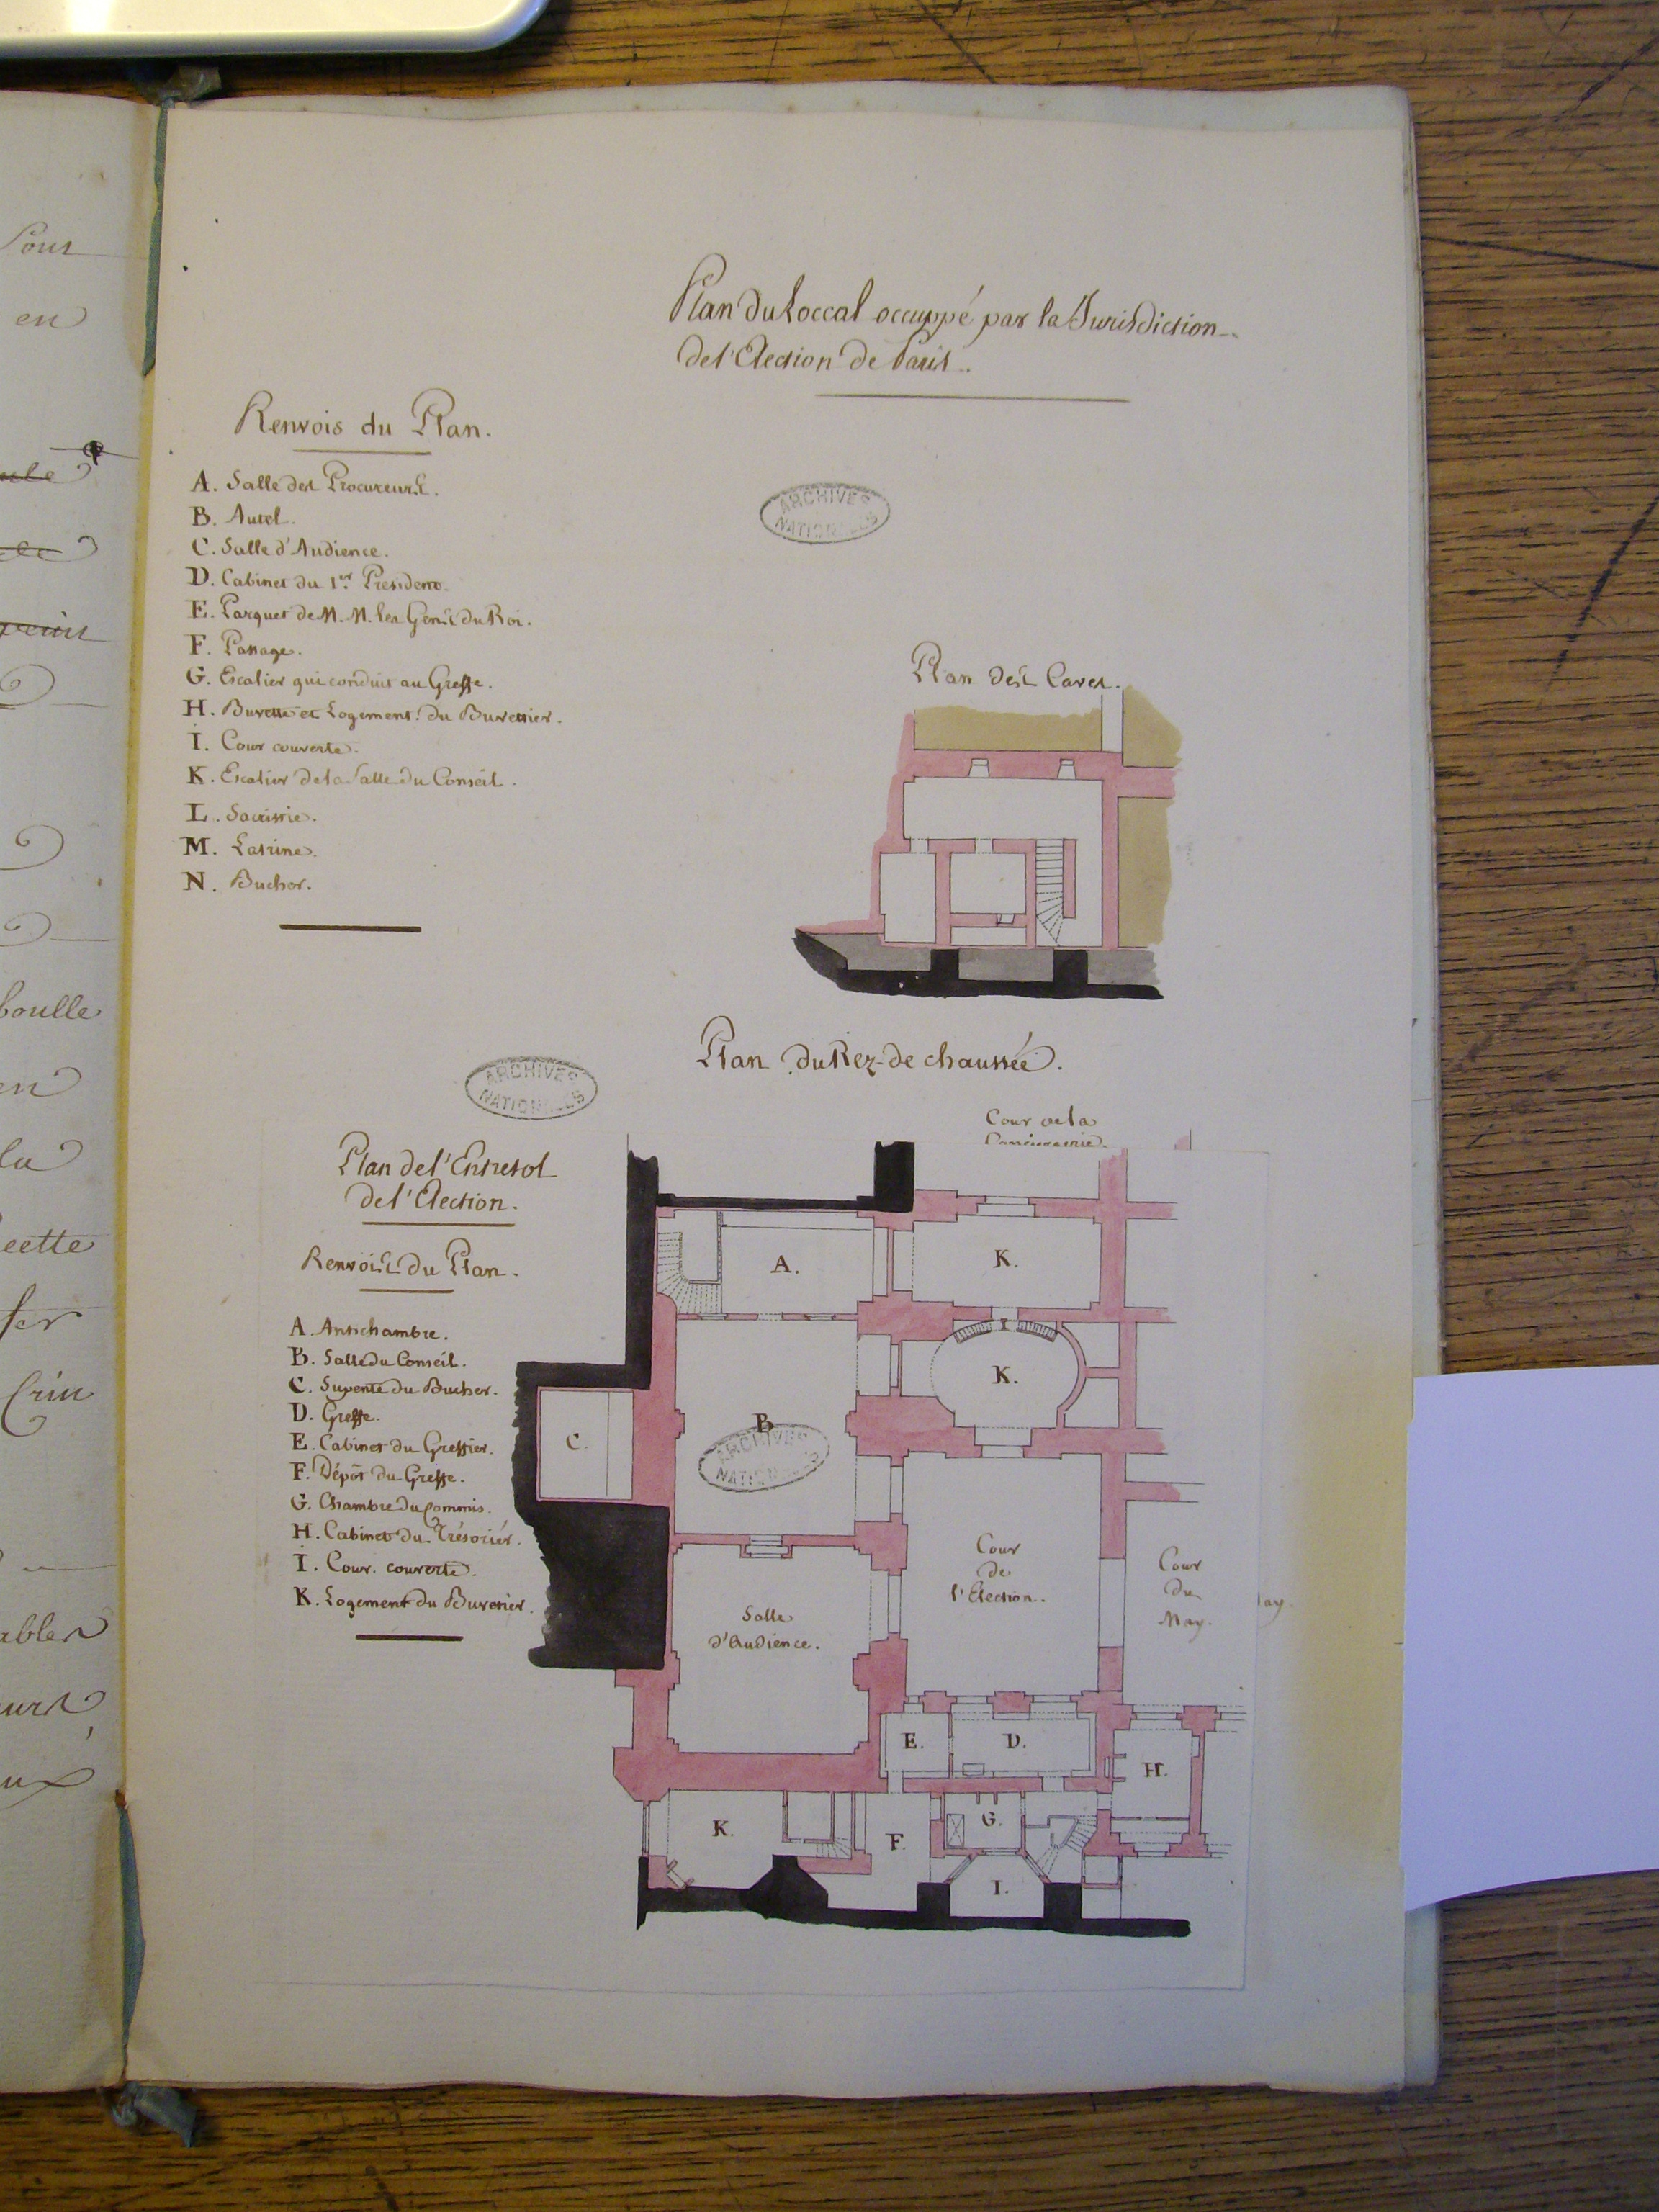 Plan du Loccal occuppé par la Jurisdiction
de l'Election de Paris.
Renvois du Plan.
A. Salle des Procureurs.
B. Autel.
C. Salle d'Audience.
D. Cabinet du 1.er President
E. Parquet de M. M. les Gens du Roi.
F. Passage.
G. Escalier qui conduit au Greffe.
H. Buvette et Logement du Buvettier.
I. Cour couverte.
K. Escalier de la Salle du Conseil.
L. Sacristie.
M. Latrine.
N. Bucher.
ARCHIVES
NATIONALES
Plan des Caves.
Plan du Rez-de chaussée.
ARCHIVES
NATIONALES
Cour de la
Plan de l'Entresol
de l'Election.
Renvois du Plan.
A. Antichambre.
B. Salle du Conseil.
C. Supente du Bucher.
D. Greffe.
E. Cabinet du Greffier.
F. Dépôt du Greffe.
G. Chambre du Commis.
H. Cabinet du Trésorier.
I. Cour couverte.
K. Logement du Buvetier.
A.
K.
I
K.
B
ARCHIVES
NATIONALES
C.
Cour
de
l'Election.
Cour
du
May.
ay.
Salle
d'Audience.
E.
D.
H.
K.
F.
G.
I.
Pour
en
boulle
en
la
cette